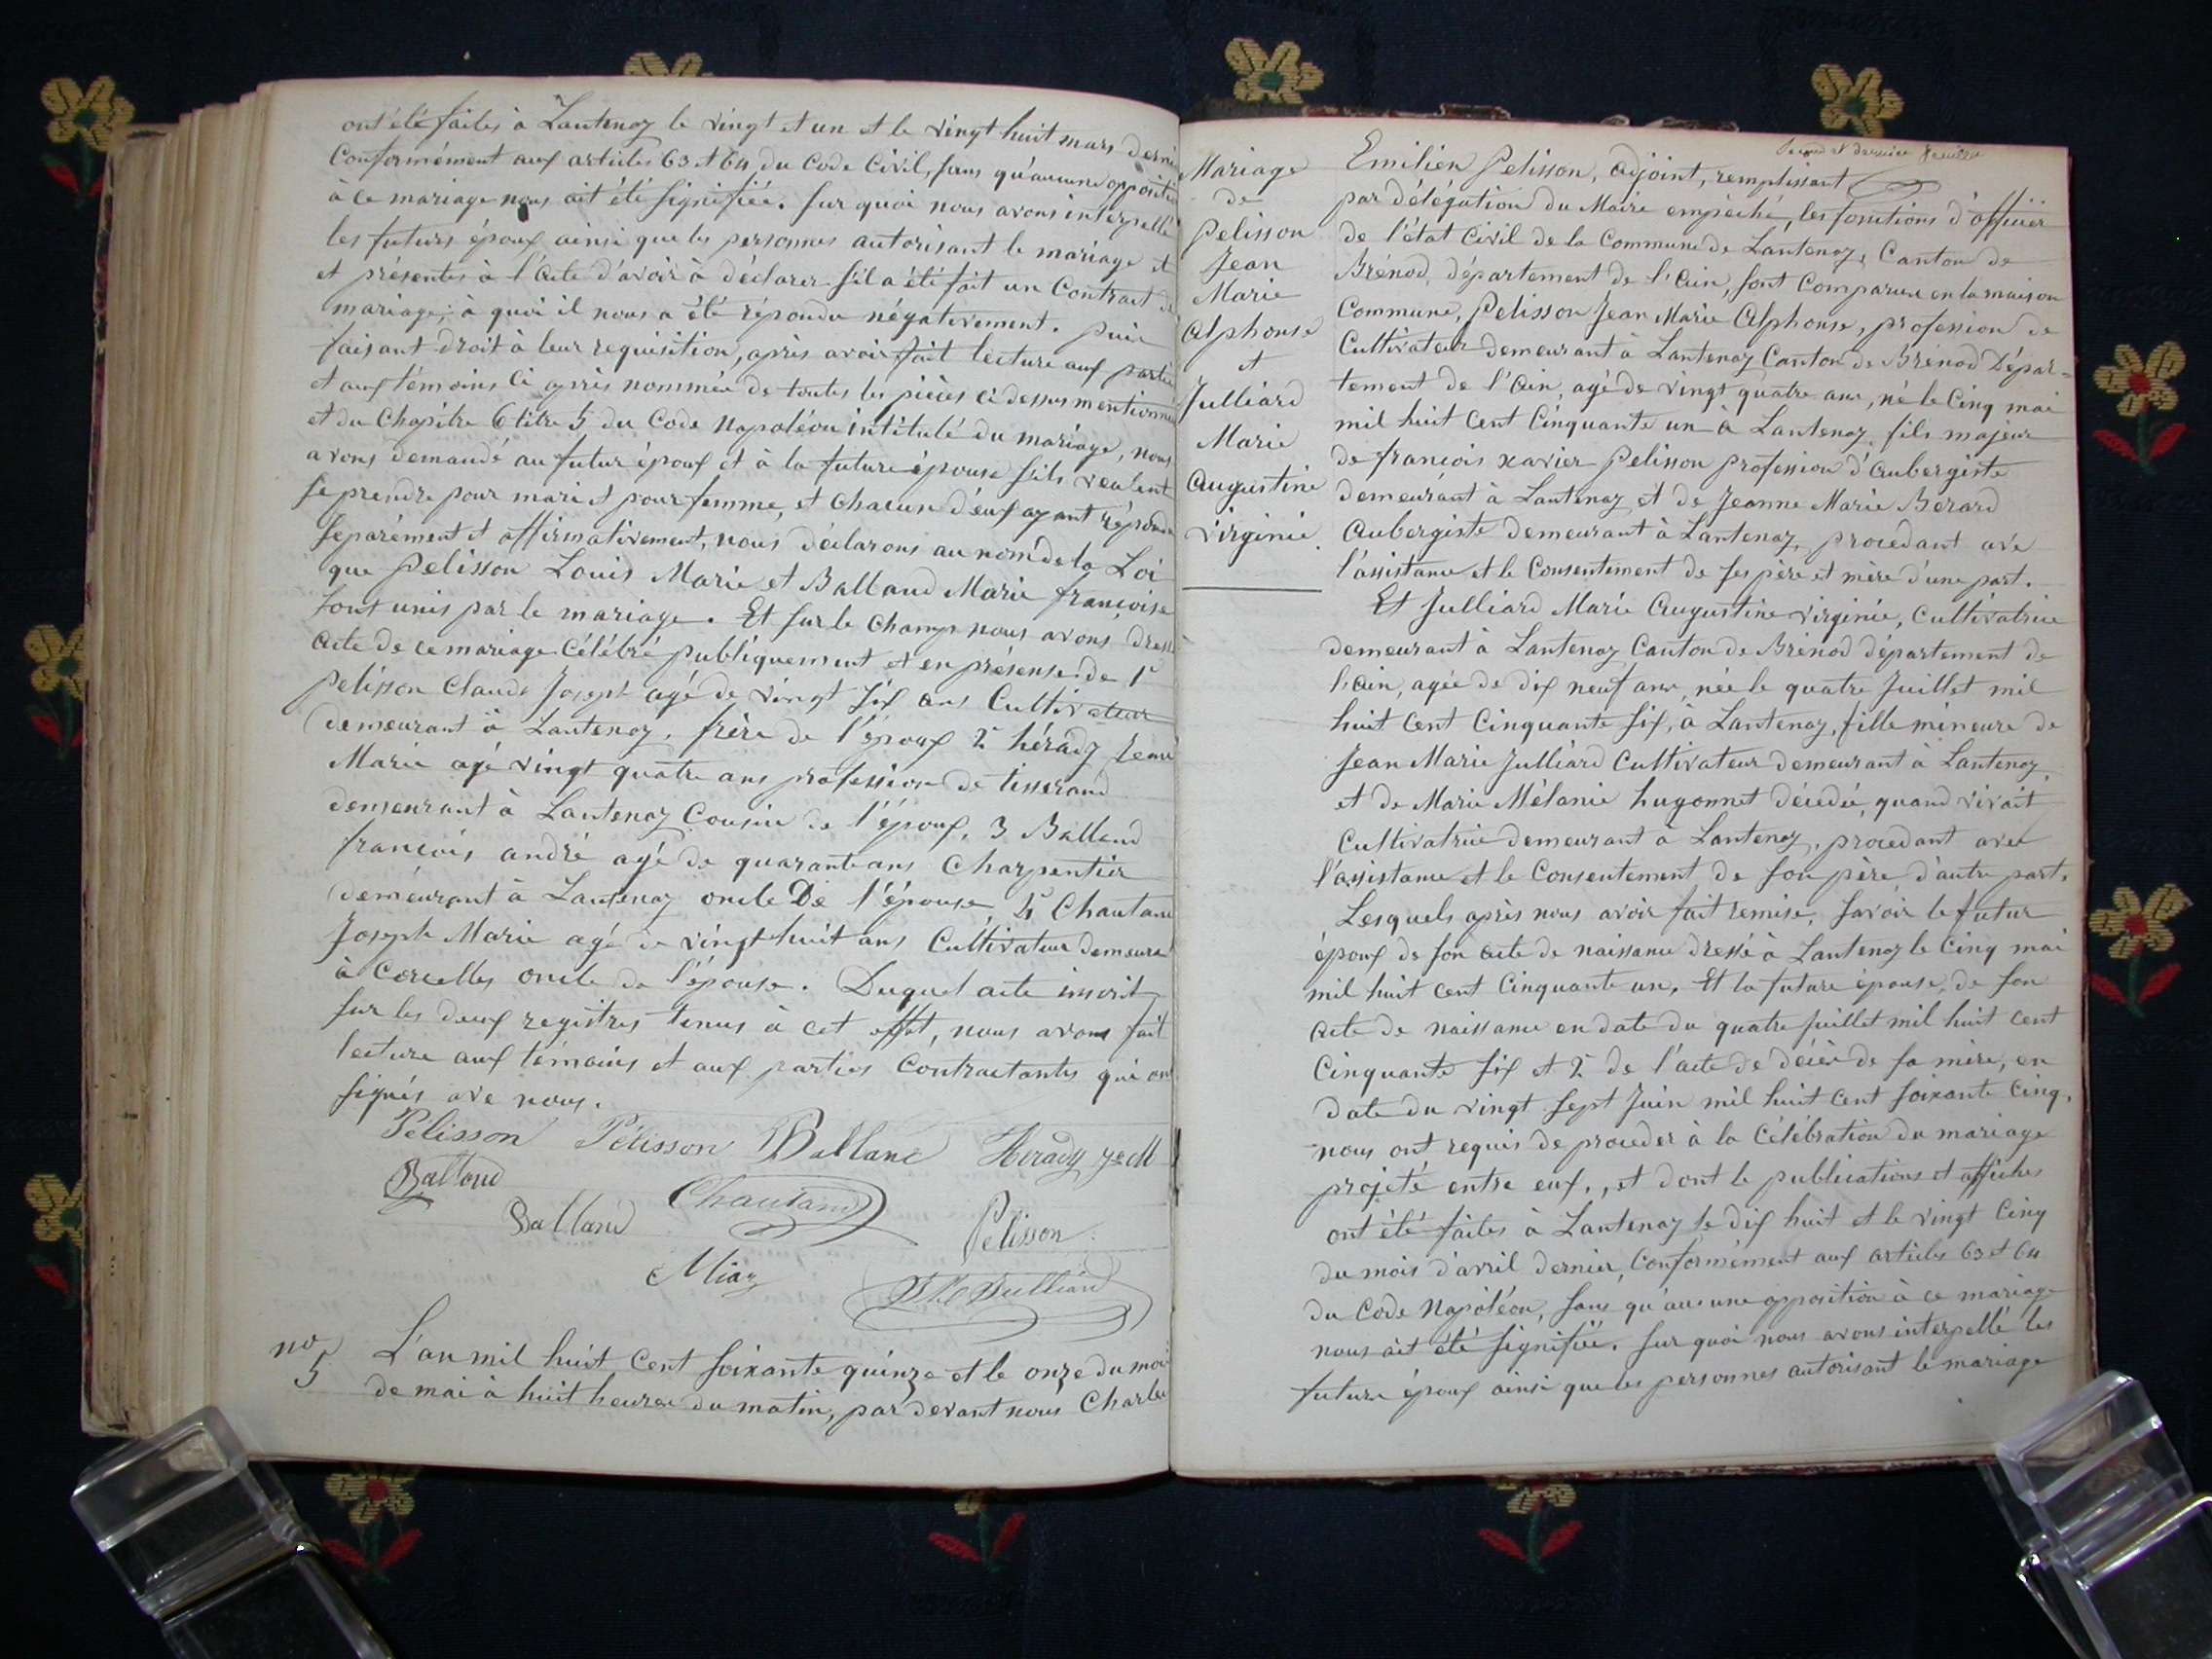 ont été faites à Lantenay le vingt et un et le vingt huit mars derni
Conformément aux articles 63 et 64 du Code Civil, sans qu'aucune oppositi
à ce mariage nous ait été signifiée. Sur quoi nous avons interpellé
les futurs époux ainsi que les personnes autorisant le mariage et
et présentes à l'acte d'avoir à déclarer s'il a été fait un Contract de
mariage; à quoi il nous a été répondu négativement. puis
faisant droit à leur requisition, après avoir fait lecture aux partie
et aux témoins ci après nommés de toutes les pièces ci dessus mentionné
et du Chapitre 6 titre 5 du Code Napoléon intitulé du mariage, nous
avons demandé au futur époux et à la future épouse s'ils veulent
se prendre pour mari et pour femme, et chacun d'eux ayant répondu
separément et affirmativement, nous déclarons au nom de la Loi
que Pelisson Louis Marie et Balland Marie françoise
sont unis par le mariage. Et sur le champ nous avons dressé
acte de ce mariage célébré publiquement et en présense de 1°
Pelisson Claude Joseph agé de vingt six ans Cultivateur
demeurant à Lantenay, frère de l'époux 2° hérady Jean
Marie agé vingt quatre ans profession de tisserand
demeurant à Lantenay Cousin de l'époux, 3 Balland
françois andré agé de quarante ans Charpentier
demeurant à Lantenay oncle De l'épouse, 4° Chautard
Joseph Marie agé de vingt huit ans Cultivateur demeura
à Corcelles oncle de l'épouse. Duquel acte inscrit
sur les deux registres tenus à cet effet, nous avons fait
lecture aux témoins et aux parties Contractantes qui on
signés ave nous.
Pelisson Pélisson Balland Hérady J M
Balland
Balland Chautard Pelisson
Miaz
Julliard
no 5 L'an mil huit Cent soixante quinze et le onze du moi
de mai à huit heures du matin, par devant nous Charles
Second et dernier feuillet
Mariage
de
Pelisson
Jean
Marie
Alphonse
et
Julliard
Marie
Augustine
Virginie.
Emilien Pelisson, adjoint, remplissant
par délégation du Maire empêché, les fonctions d'officier
de l'état Civil de la Commune de Lantenay, Canton de
Brénod, département de l'Ain, sont Comparu en la maison
Commune, Pelisson Jean Marie Alphonse, profession de
Cultivateur demeurant à Lantenay Canton de Brénod Dépar=
tement de l'Ain, agé de vingt quatre ans, né le Cinq mai
mil huit Cent Cinquante un à Lantenay, fils majeur
de francois xavier Pelisson profession d'aubergiste
demeurant à Lantenay et de Jeanne Marie Berard
aubergiste demeurant à Lantenay, procedant ave
l'assistance et le Consentement de ses père et mère d'une part.
Et Julliard Marie Augustine Virginie, Cultivatrice
demeurant à Lantenay Canton de Brénod département de
l'Ain, agée de dix neuf ans, née le quatre Juillet mil
huit cent Cinquante six, à Lantenay, fille mineure de
Jean Marie Julliard Cultivateur demeurant à Lantenay
et de Marie Mélanie hugonnet décedée, quand vivait
Cultivatrice demeurant à Lantenay, procedant avec
l'assistance et le Consentement de son père d'autre part.
Lesquels après nous avoir fait remise, savoir le futur
époux de son acte de naissance dressé à Lantenay le Cinq mai
mil huit cent Cinquante un, Et la future épouse, de son
acte de naissance en date du quatre juillet mil huit cent
Cinquante six et 2° de l'acte de décès de sa mère, en
date du vingt sept Juin mil huit Cent soixante Cinq,
nous ont requis de proceder à la célébration du mariage
projeté entre eux, et dont le publications et affiches
ont été faites à Lantenay le dix huit et le vingt Cinq
du mois d'avril dernier, Conformément aux articles 63 et 64
du Code Napoléon, sans qu'aucune opposition à ce mariage
nous ait été signifiée. Sur quoi nous avons interpellé les
future époux ainsi que les personnes autorisant le mariage